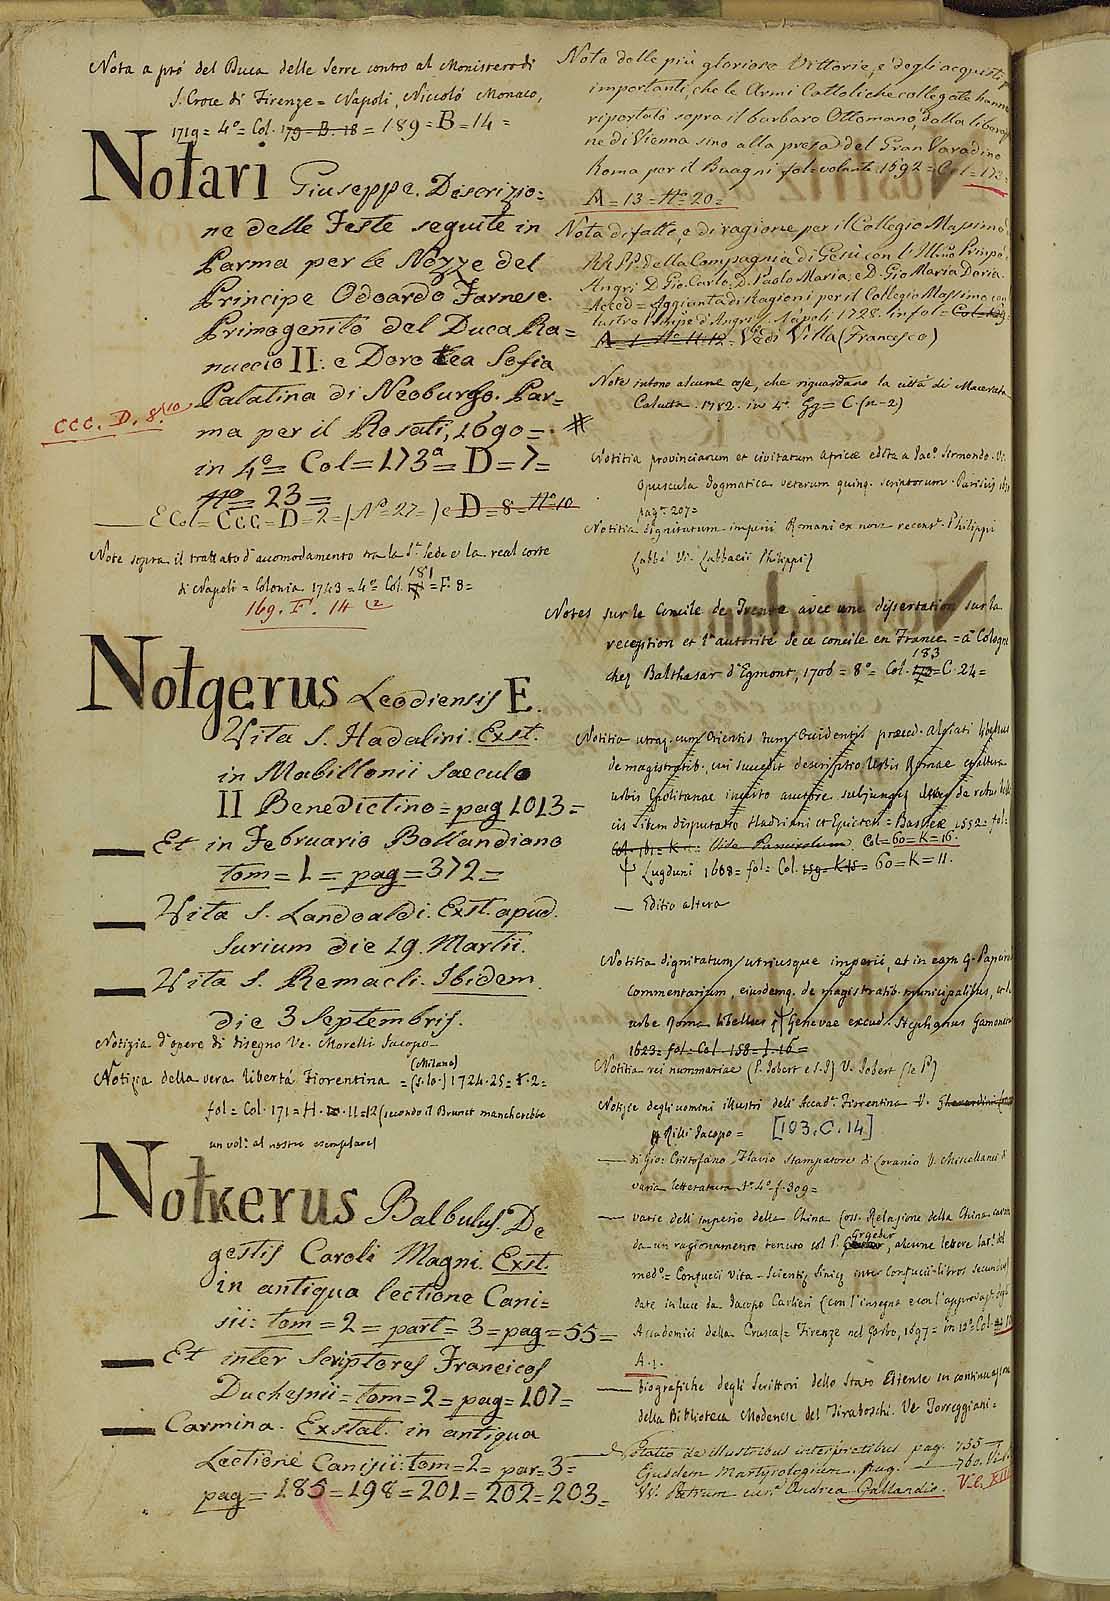 Nota a pró del Duca delle Serre contro al Monistero di
S. Croce di Firenze = Napoli, Niccoló Monaco,
1719 = 4º = Col. 179 = B. 18 = 189 = B = 14 =
Notari Giuseppe. Descrizio=
ne delle Feste seguite in
Parma per le Nozze del
Principe Odoardo Farnese.
Primogenito del Duca Ra=
nuccio II: e Dorotea Sofia
Palatina di Neoburgo. Par=
CCC. D. 8/10
ma per il Rosati, 1690 = #
in 4º = Col = 173ª = D = 7 =
Nº = 23 =
E Col = Ccc = D = 2 = (Nº = 27 = ) e D = 8 = Nº 10
Note sopra il trattato d'accomodamento tra la Sª Sede e la real corte
di Napoli = Colonia 1743 = 4º Col. 181 = F. 8 =
169. F. 14 (2
Notgerus Leodiensis E.
Vita S. Hadalini. Exst.
in Mabillonii Saeculo
II Benedictino = pag 1013 =
Et in Februario Bollandiano
tom = 1 = pag = 372 =
Vita S. Landoaldi. Exst. apud.
Surium die 19. Martii.
Vita S. Remacli. Ibidem.
die 3 Septembris.
Notizia d'opere di disegno Ve. Morelli Jacopo
Notizia della vera libertá Fiorentina = (Milano) (s. lo.) 1724.25 = t. 2 =
fol = Col. 171 = H. 11 = 12 (secondo il Brunet mancherebbe
un vol: al nostro esemplare)
Notkerus Balbulus. De
gestis Caroli Magni. Exst.
in antiqua lectione Cani=
sii: tom = 2 = part = 3 = pag = 55 =
Et inter Scriptores Francicos
Duchesnii = tom = 2 = pag = 107 =
Carmina. Exstat. in antiqua
Lectione Canisii: tom = 2 = par = 3 =
pag = 185 = 198 = 201 = 202 = 203 =
Nota delle più gloriose Vittorie, e degli acquisti
importanti, che le Armi Cattoliche collegate hanno
riportato sopra il barbaro Ottomano, dalla liberazio
ne di Vienna sino alla presa del Gran Varadino
Roma per il Buagni fol. volante 1692 = Col = 173 =
A = 13 = Nº 20 =
Nota di fatto, e di ragione per il Collegio Massimo
RR. PP. della Compagnia di Gesù con l'Illmo Prinpe
Angri D. Gio Carlo, D. Paolo Maria, e D. Gio Maria Doria.
Acced = Aggiunta di Ragioni per il Collegio Massimo con
l'Prinpe d'Angri. Napoli 1728. in fol = Col =
A = 1 = Nº 11.12 = Vedi Villa (Francesco)
Note intorno alcune cose, che riguardano la cittá di Macerata
1782. in 4º Gg = C. (n-2)
Notitia provinciarum et civitatum Africae edita a Jacº Sirmondo. Vi.
opuscula dogmatica veterum quinq. scriptorum. Parisiis
pagª 207 =
Notitia dignitatum imperii Romani ex nova recensº Philippi
Labbé Vi. (Labbaeii Philippi)
Notes sur le Concile de Trente avec une dissertation sur la
reception et l'autorité de ce concile en France = à Cologne
chez Balthasar d'Egmont, 1706 = 8º = Col. 183 = C. 24 =
Notitia utraq. cum Orientis tum Occidentis praeced. Alciati libellus
de magistratib., cui succedit descriptio Urbis Romae et altera
urbis Cpolitanae incerto auctore subjungi de rebus
cis item disputatio Hadriani et Epicteti = Basileae 1552 = fol:
Col. 161 = K. Vide Pancirolum Col = 60 = K = 16.
Lugduni 1608 = fol = Col. 159 = K 15 = 60 = K = 11.
Editio altera
Notitia dignitatum utriusque imperii, et in eam G. Pancirol
commentarium, ejusdemq. de magistratib. municipalibus,
urbe Roma libellus Genevae excud. Stephanus Gamonetus
1623 = fol = Col. 158 = I. 16 =
Notitia rei nummariae (P. Jobert e S. J) V. Jobert (le P.)
Notizie degli uomini illustri dell'Accadª. Fiorentina V.
Rilli Jacopo = [103. C. 14]
di Gio: Cristofano Flavio Stampatore di Lovanio V. Miscellanei di
varia letteratura Tº. 4º f. 309 =
varie dell'imperio della China (oss. Relazione della China cavata
da un ragionamento tenuto col P. Grueber, alcune lettere lat.e del
medº. = Confucii vita - Scientiae Sinicae inter Confucii libros secundus)
date in luce da Jacopo Carlieri (con l'insegna e con l'approvazº degli
Accademici della Crusca) = Firenze nel Garbo, 1697 = in 12º Col.
A. 1.
biografiche degli Scrittori dello Stato Estense in continuazione
della Biblioteca Modenese del Tiraboschi. Ve Torreggiani =
Notatio de illustribus interpretibus pag. 755
Ejusdem Martyrologium. pag. 760. Vi.
Vi. Patrum curª Andrea Gallandio. V.e. XIII